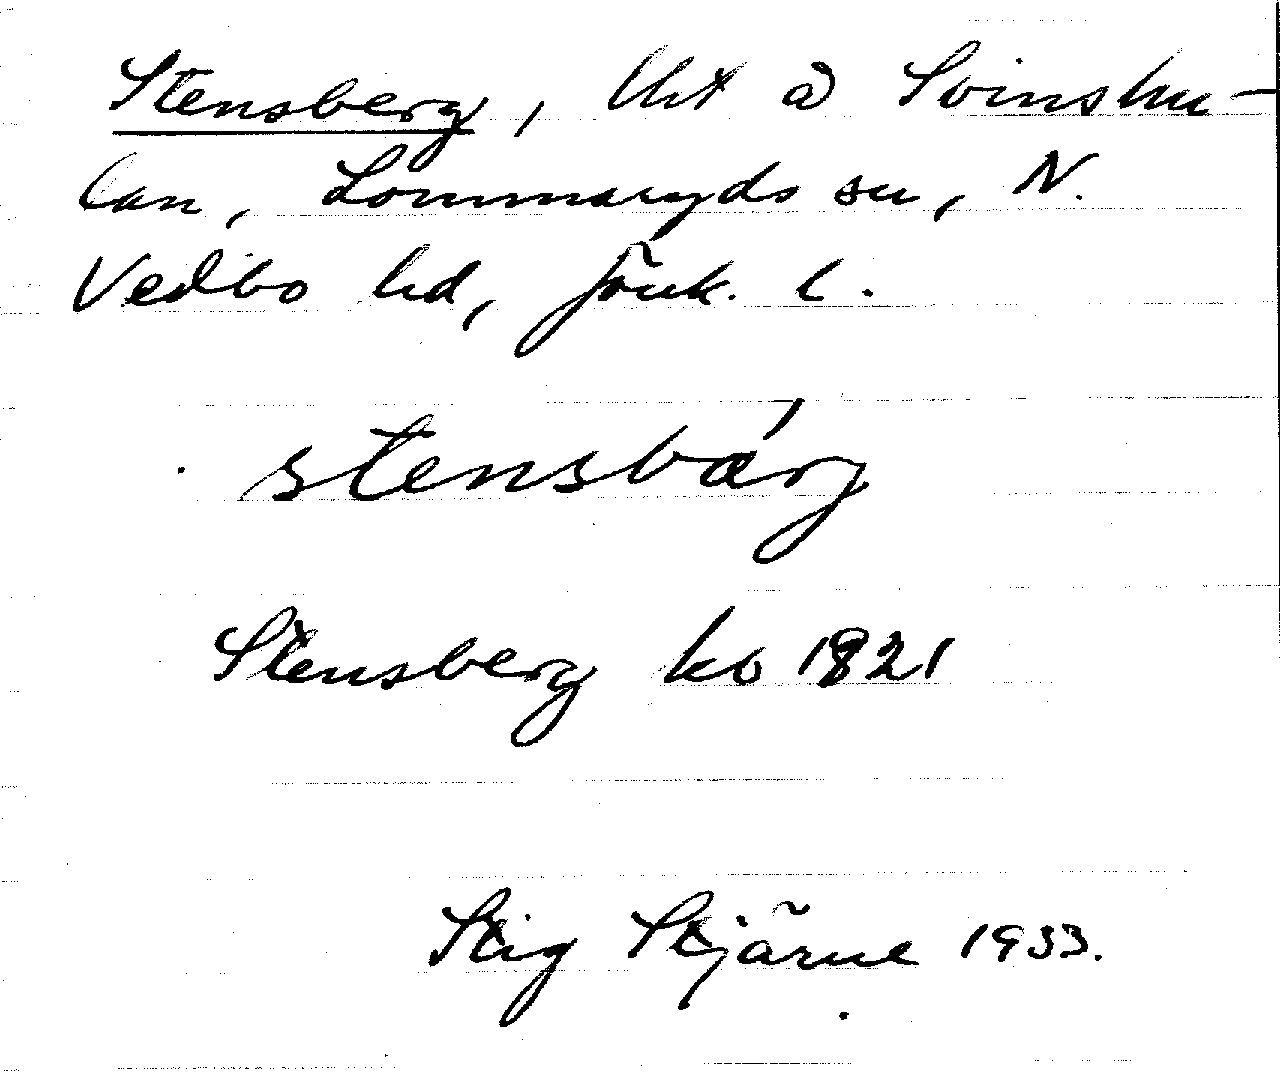 Stensberg, lht å Svinshu-
lan, Lommaryds sn, N.
Vedbo hd, Jönk. l.
stensbárg
Stensberg kb 1821
Stig Stjärne 1933.